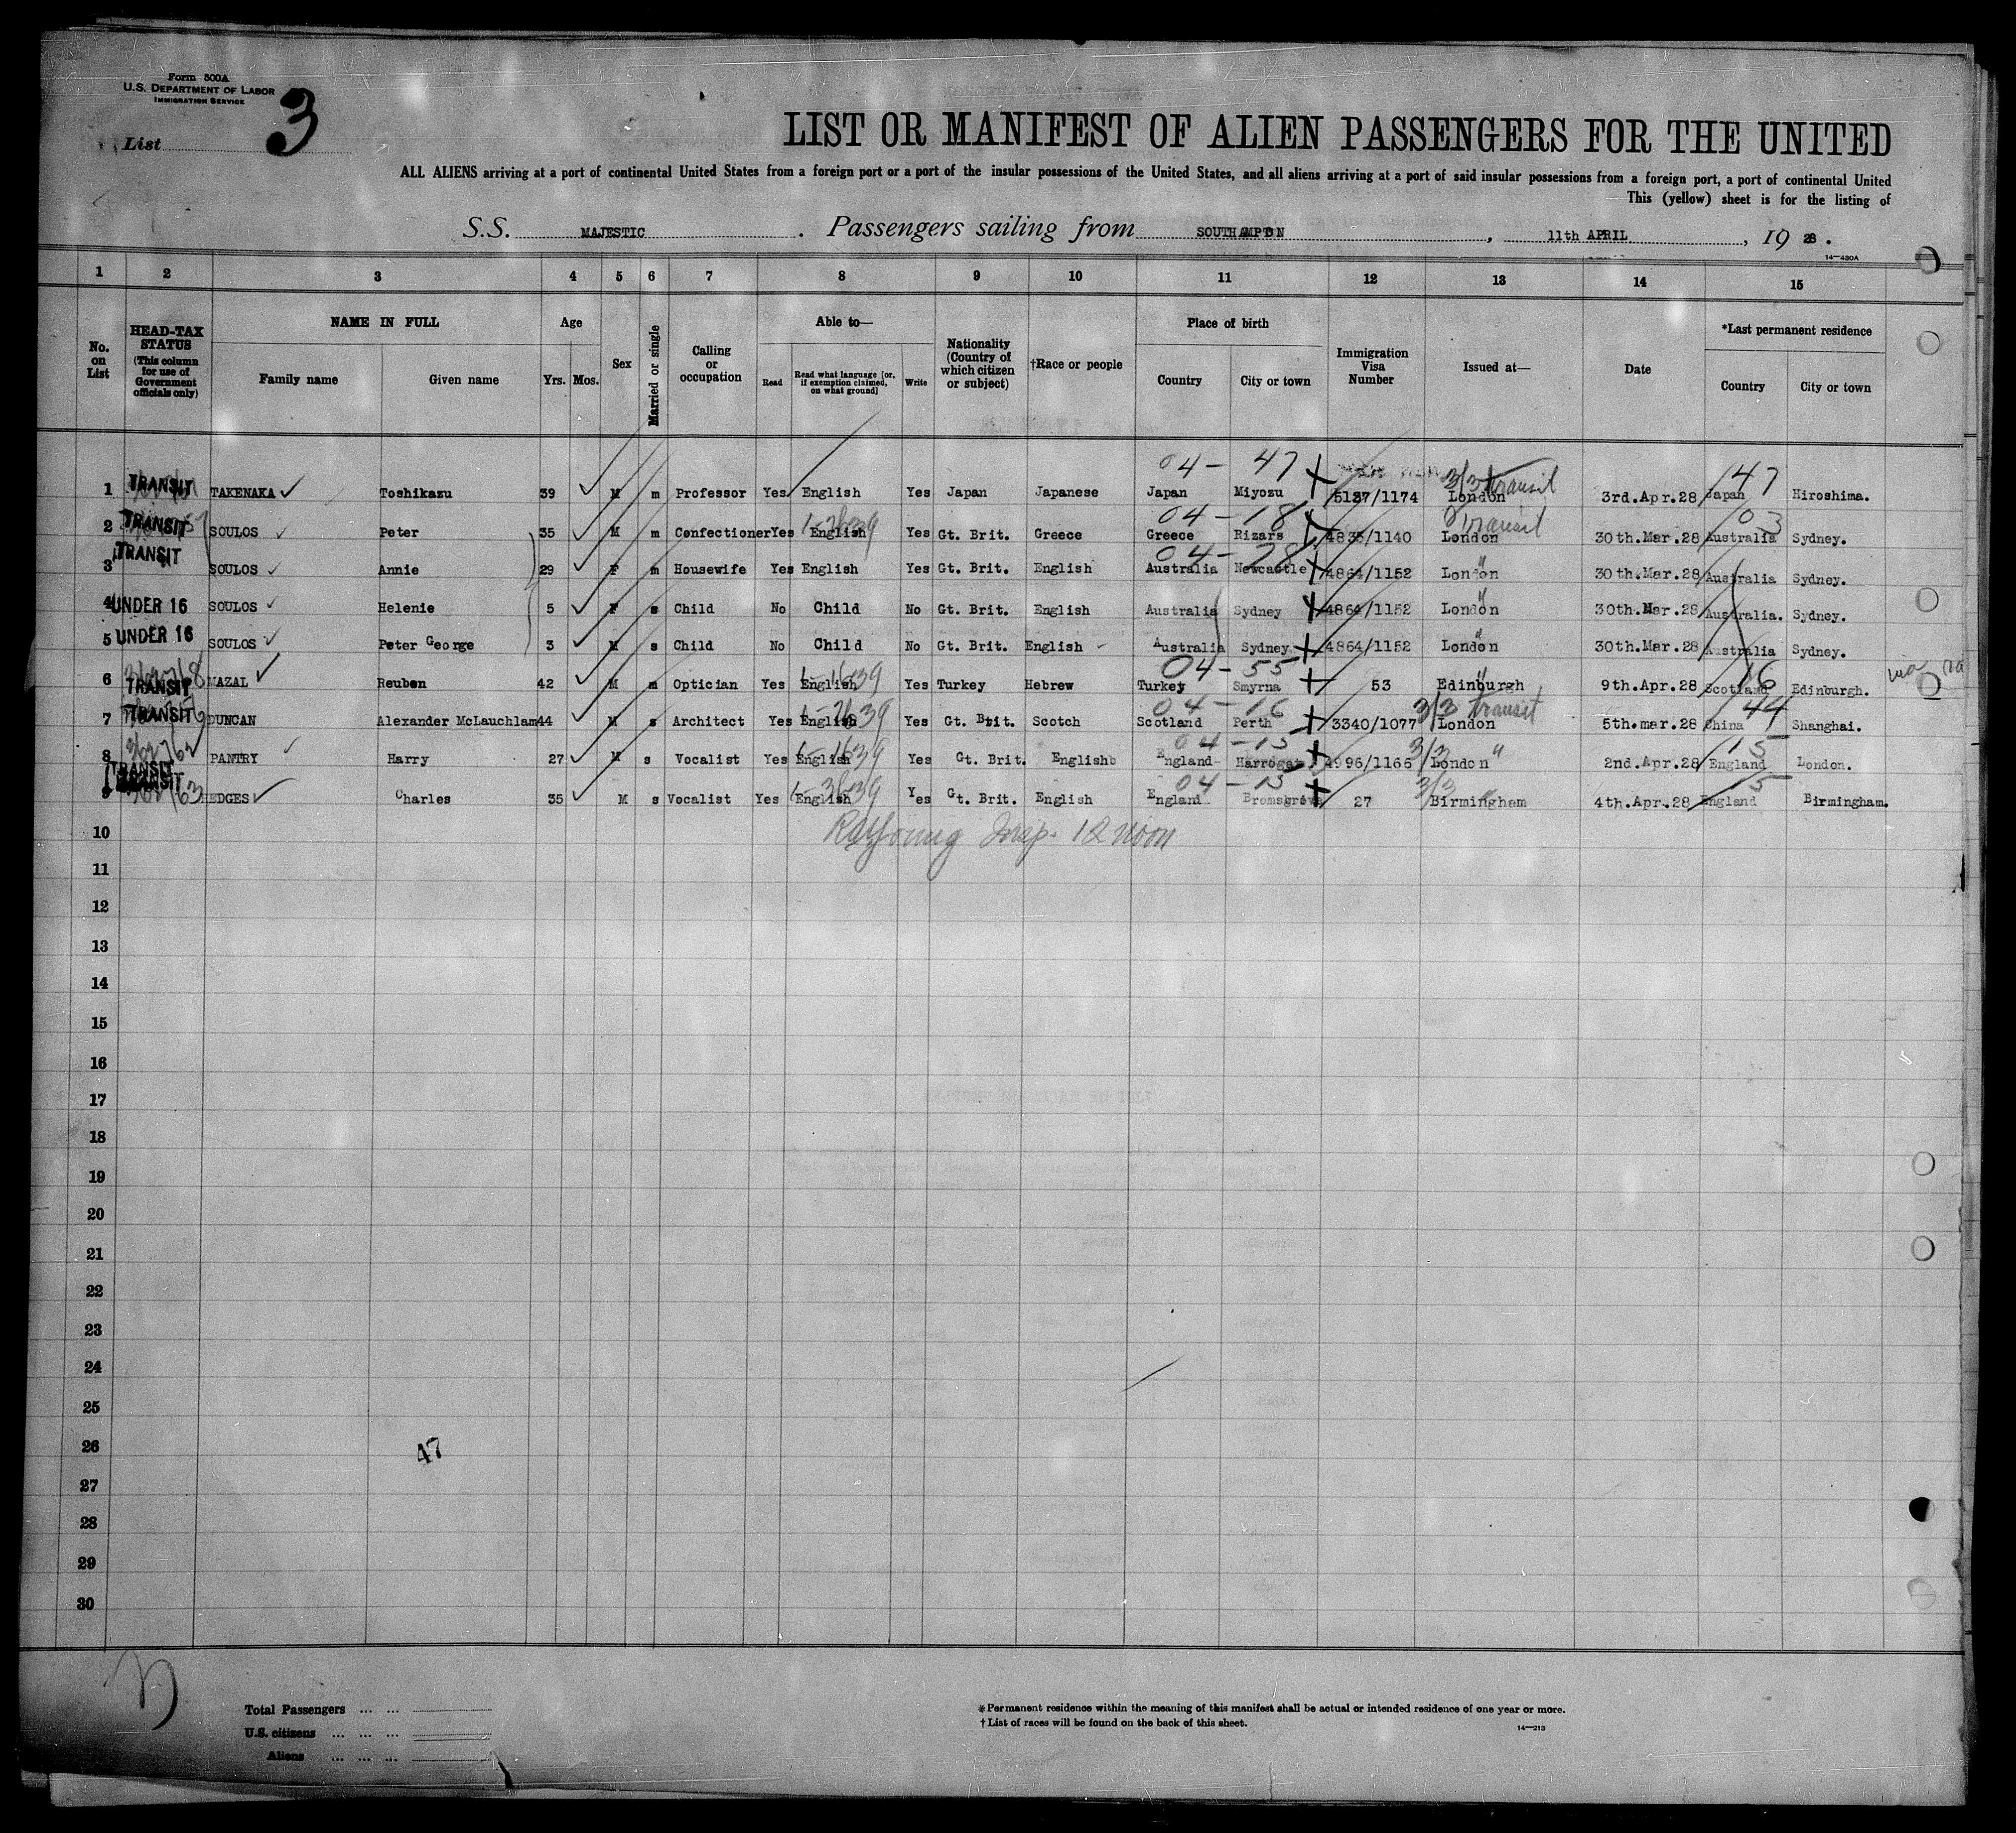 Form 500A
U.S. DEPARTMENT OF LABOR
IMMIGRATION SERVICE
List 3
LIST OR MANIFEST OF ALIEN PASSENGERS FOR THE UNITED
ALL ALIENS arriving at a port of continental United States from a foreign port or a port of the insular possessions of the United States, and all aliens arriving at a port of said insular possessions from a foreign port, a port of continental United
This (yellow) sheet is for the listing of
S.S. MAJESTIC . Passengers sailing from SOUTHAMPTON , 11th APRIL , 19 28 .
14—430A
1 2 3 4 5 6 7 8 9 10 11 12 13 14 15
No. on List
HEAD-TAX STATUS (This column for use of Government officials only)
NAME IN FULL
Family name Given name
Age
Yrs. Mos.
Sex
Married or single
Calling or occupation
Able to—
Read Read what language [or, if exemption claimed, on what ground] Write
Nationality (Country of which citizen or subject)
†Race or people
Place of birth
Country City or town
Immigration Visa Number
Issued at—
Date
*Last permanent residence
Country City or town
04 - 47 3/3 transit 47
1 TRANSIT TAKENAKA Toshikazu 39 M m Professor Yes English Yes Japan Japanese Japan Miyozu 5137/1174 London 3rd.Apr.28 Japan Hiroshima.
04 - 18 transit 03
2 TRANSIT SOULOS Peter 35 M m Confectioner Yes English Yes Gt. Brit. Greece Greece Rizars 4835/1140 London 30th.Mar.28 Australia Sydney.
04 - 28
3 TRANSIT SOULOS Annie 29 F m Housewife Yes English Yes Gt. Brit. English Australia Newcastle 4864/1152 London " 30th.Mar.28 Australia Sydney.
4 UNDER 16 SOULOS Helenie 5 F s Child No Child No Gt. Brit. English Australia Sydney 4864/1152 London " 30th.Mar.28 Australia. Sydney.
5 UNDER 16 SOULOS Peter George 3 M s Child No Child No Gt. Brit. English Australia Sydney 4864/1152 London " 30th.Mar.28 Australia Sydney.
04 - 55 16
6 TRANSIT MAZAL Reuben 42 M m Optician Yes English Yes Turkey Hebrew Turkey Smyrna 53 Edinburgh " 9th.Apr.28 Scotland Edinburgh.
04 - 16 3/3 transit 44
7 TRANSIT DUNCAN Alexander McLauchlam 44 M s Architect Yes English Yes Gt. Brit. Scotch Scotland Perth 3340/1077 London 5th.mar.28 China Shanghai.
04 - 15 3/3 " 15
8 TRANSIT PANTRY Harry 27 M s Vocalist Yes English Yes Gt. Brit. English England Harrogate 4996/1166 London 2nd.Apr.28 England London.
04 - 15 3/3 15
9 TRANSIT HEDGES Charles 35 M s Vocalist Yes English Yes Gt. Brit. English England Bromsgrove 27 Birmingham 4th.Apr.28 England Birmingham.
10 Young Insp. 12 noon
11
12
13
14
15
16
17
18
19
20
21
22
23
24
25
26
47
27
28
29
30
Total Passengers ... ...
U.S. citizens ... ... ...
Aliens ... ... ...
*Permanent residence within the meaning of this manifest shall be actual or intended residence of one year or more.
†List of races will be found on the back of this sheet.
14—213